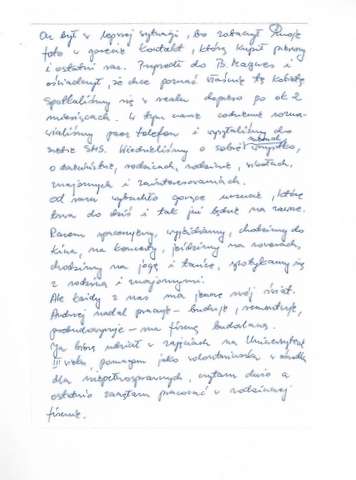 On był w lepszej sytuacji, bo zobaczył moje
foto w gazecie Kontakt, którą kupił pierwszy
i ostatni raz. Przyszedł do B. Magnes i
oświadczył, że chce poznać właśnie tę kobietę.
Spotkaliśmy się w realu dopiero po ok. 2
miesiącach. W tym czasie codziennie rozma-
wialiśmy przez telefon i wysyłaliśmy do
siebie SMS. Wiedzieliśmy o sobie niemal wszystko,
o dzieciństwie, rodzicach, rodzinie,
znajomych i zainteresowaniach.
Od razu wybuchło gorące uczucie, które
trwa do dziś i tak już będzie na zawsze.
Razem spacerujemy, wyjeżdżamy, chodzimy do
kina, na koncerty, jeździmy na rowerach,
chodzimy na jogę i tańce, spotykamy się
z rodziną i znajomymi.
Ale każdy z nas ma jeszcze swój świat.
Andrzej nadal pracuje - buduje, remontuje,
przebudowuje - ma firmę budowlaną.
Ja biorę udział w zajęciach na Uniwersytecie
III wieku, pomagam jako wolontariuszka w
dla niepełnosprawnych, czytam dużo a
ostatnio zaczęłam pracować w rodzinnej
firmie.